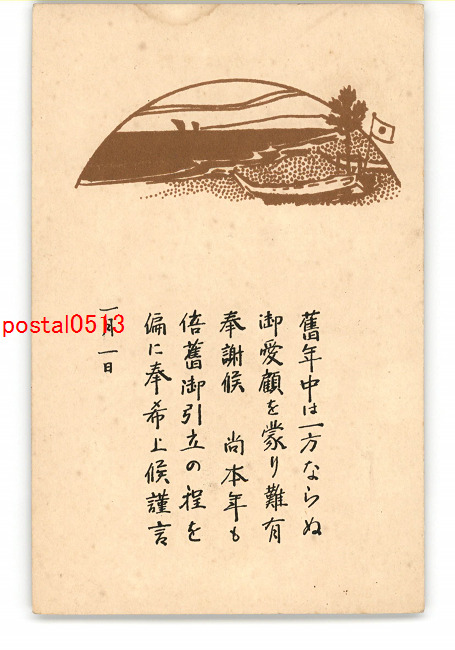 舊年中は一方ならぬ
御愛顧を蒙り難有
奉謝候 尚本年も
倍舊御引立の程を
偏に奉希上候謹言
一月一日
postal0513